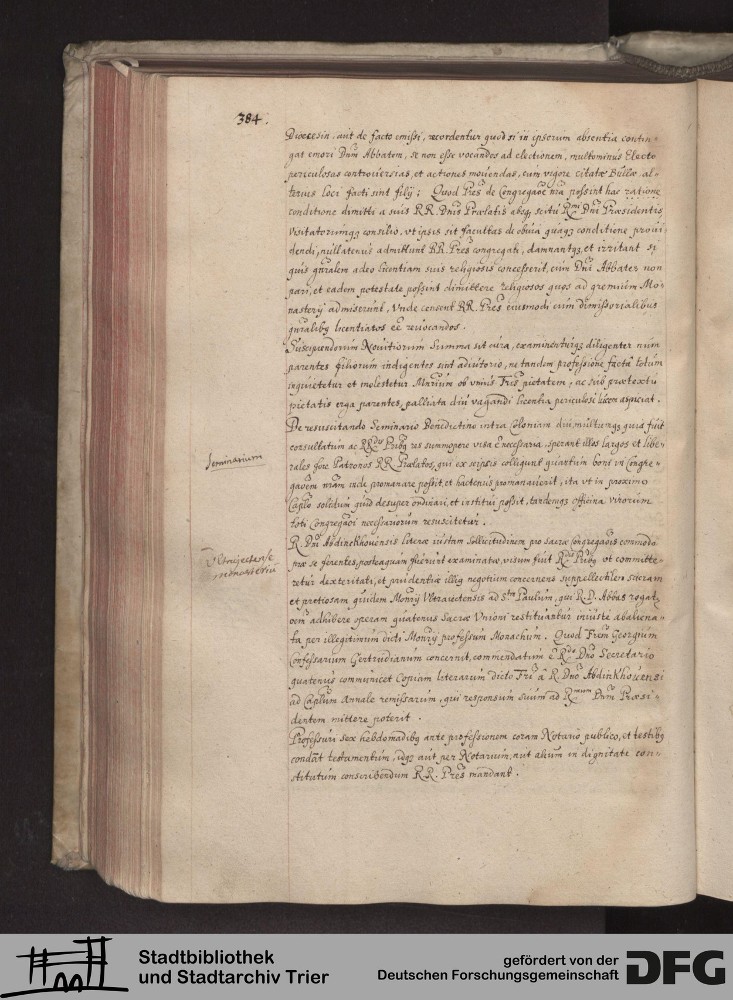 384.
Dioecesin, aut de facto emissi, recordentur quod si in ipsorum absentia contin-
gat emori Dnum Abbatem, se non esse vocandos ad electionem, multominus Electo
periculosas controversias, et actiones moviendas, cum vigore citatæ Bullæ, al-
terius loci facti sint filij; Quod Pres de Congregaoe nra possint hac ratione
conditione dimitti a suis RR. Dnis Prælatis absq scitu Rmi Dni Præsidentis
visitatorumqz consilio, ut ipsis sit facultas de obvia quaqz conditione provi
dendi, nullatenus admittunt RR. Pres congregati, damnantqz, et irritant si
quis gnralem adeo licentiam suis religiosis concesserit, cum Dni Abbates non
pari, et eadem potestate possint dimittere religiosos quos ad gremium Mo-
nasterij admiserunt, Unde censent RR. Pres eiusmodi cum Dimissorialibus
gnralibq licentiatos eē revocandos.
Suscipiendorum Novitiorum Summa sit cura, examinenturqz diligenter num
parentes filiorum indigentes sint adiutorio, ne tandem professione facta totum
inquietetur et molestetur Mrium ob unius Fris pietatem, ac sub prætextu
pietatis erga parentes, palliata diu vagandi licentia periculosi aspiciat.
De resuscitando Seminario Benedictino intra Coloniam diu, multumqz quia fuit
consultatum ac RRdis Pribq res summopere visa ē necessaria, sperant illos largos et libe-
rales fore Patronos RR. Prælatos, qui ex seipsis colligunt quantum boni in Congre-
gaoem nram inde promanare possit, et hactenus promanaverit, ita ut in proximo
Caplo solidum quid desuper ordinari, et institui possit, tandemqz officina virorum
toti Congregaoi necessariorum resuscitetur.
Seminarium
R. Dni Abdinckhovensis literæ iustam sollicitudinem pro sacræ Congregaois commodo
præ se ferentes, posteaquam fuerunt examinatæ, visum fuit Rdis Pribq ut committe-
retur dexteritati, et prudentiæ illiq negotium concernens suppellectilem sacram
et pretiosam eiusdem Monrij Ultraiectensis ad Stum Paulum, qui R. D. Abbas rogatz
oem adhibere operam quatenus Sacræ Unioni restituantur iniuste abaliena-
ta per illegitimum dicti Monrij professum Monachum. Quod Frem Georgium
Confessarium Gertrudianum concernit, commendatum ē Rdo Dno Secretario
quatenus communicet Copiam literarum dicto Fri â R. Dno Abdinkhovensi
ad Caplum Annale remissarum, qui responsum suum ad Rmum Dnum Præsi-
dentem mittere poterit.
Ultraiectense
monasterium
Professuri sex hebdomadibq ante professionem coram Notario publico, et testibq
condāt testamentum, idqz aut per Notarium, aut alium in dignitate con-
stitutum conscribendum RR. Pres mandant.
Stadtbibliothek
und Stadtarchiv Trier
gefördert von der
Deutschen Forschungsgemeinschaft
DFG